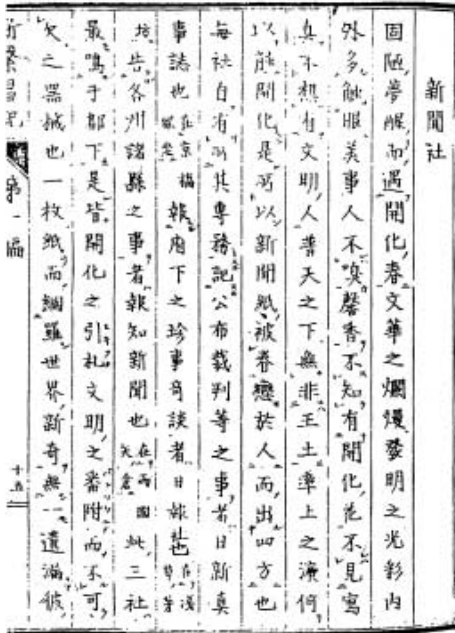 新聞社
固陋夢醒而遇開化春文華之爛熳發明之光彩内
外多触眼美事人不嗅馨香不知有開化花不見寫
真不想有文明人普天之下無非王土率土之濱何
以能開化是所以新聞紙被眷戀於人而出四方也
毎社自有所其專務記公布裁判等之事者日新真
事誌也在京橋報府下之珍事奇談者日報社也
告各州諸縣之事者報知新聞也在両國矢倉此三社
最鳴于都下是皆開化之引札文明之番附而不可
欠之器械也一枚紙而網羅世界新奇無一遺滿彼
新繁昌記 第一編 十五